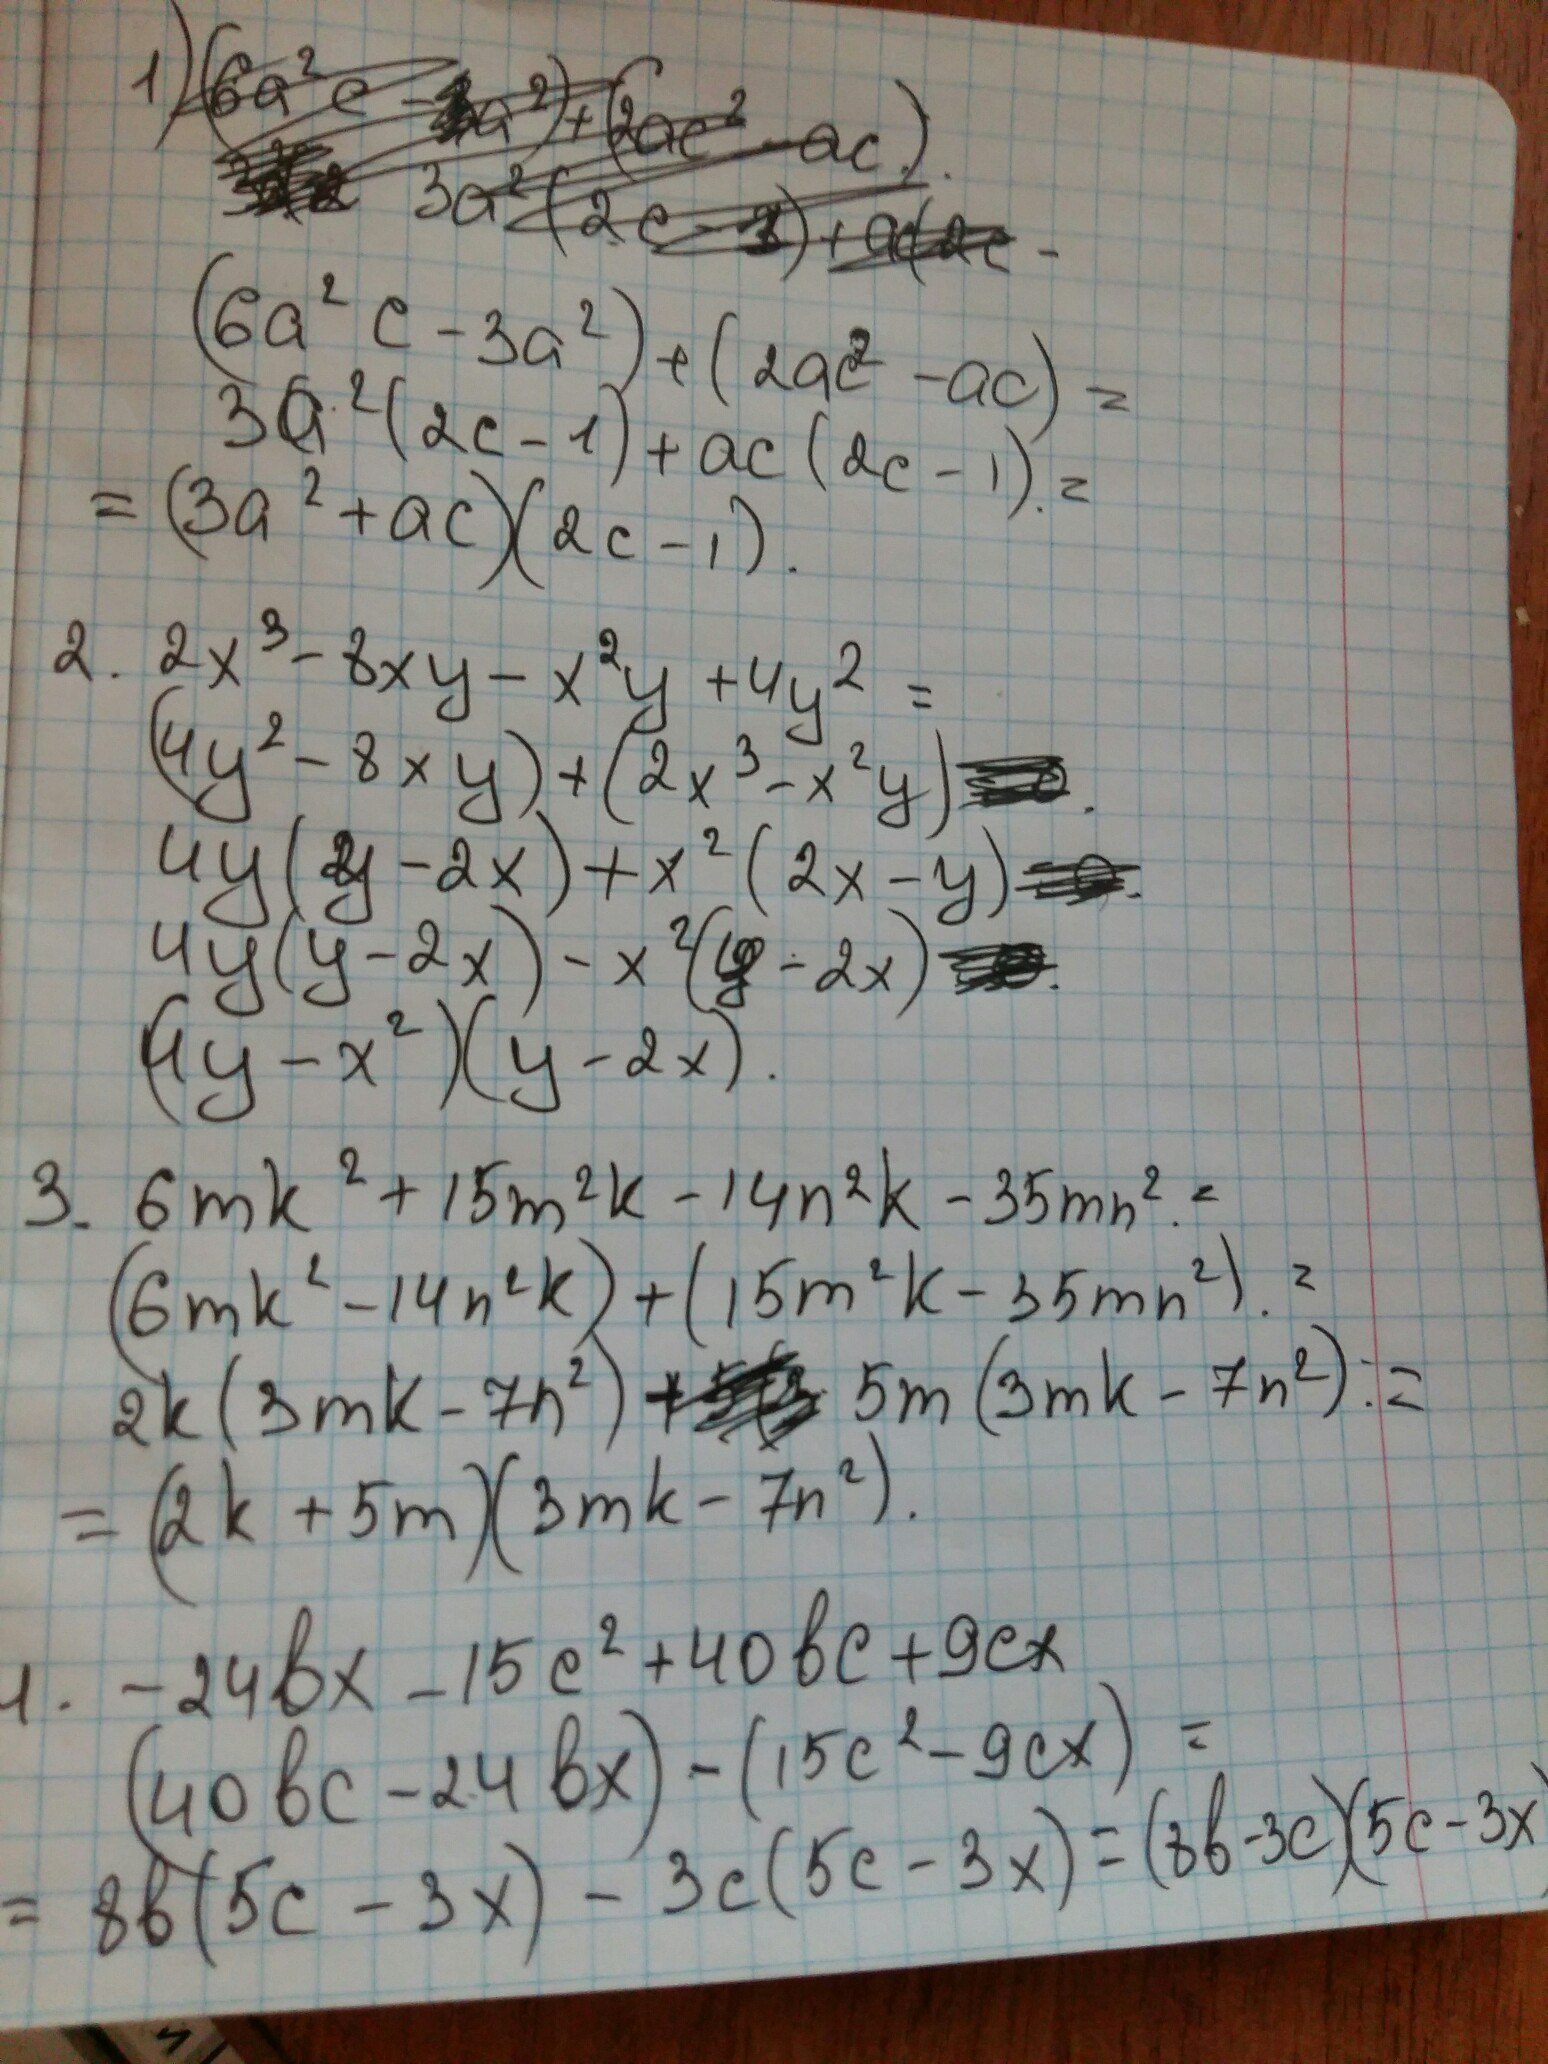 1) (6a² c - 3a²) + (2ac² - ac).
3a² (2c - 1) + ac(2c -
(6a² c - 3a²) + (2ac² - ac) =
3a² (2c - 1) + ac (2c - 1). =
= (3a² + ac)(2c - 1).
2. 2x³ - 8xy - x²y + 4y² =
(4y² - 8xy) + (2x³ - x²y)
4y(y - 2x) + x² (2x - y)
4y(y - 2x) - x²(y - 2x)
(4y - x²)(y - 2x).
3. 6mk² + 15m²k - 14n²k - 35mn². =
(6mk² - 14n²k) + (15m²k - 35mn²). =
2k(3mk - 7n²) + 5m(3mk - 7n²). =
= (2k + 5m)(3mk - 7n²).
4. - 24bx - 15c² + 40bc + 9cx
(40bc - 24bx) - (15c² - 9cx) =
= 8b(5c - 3x) - 3c(5c - 3x) = (8b - 3c)(5c - 3x)